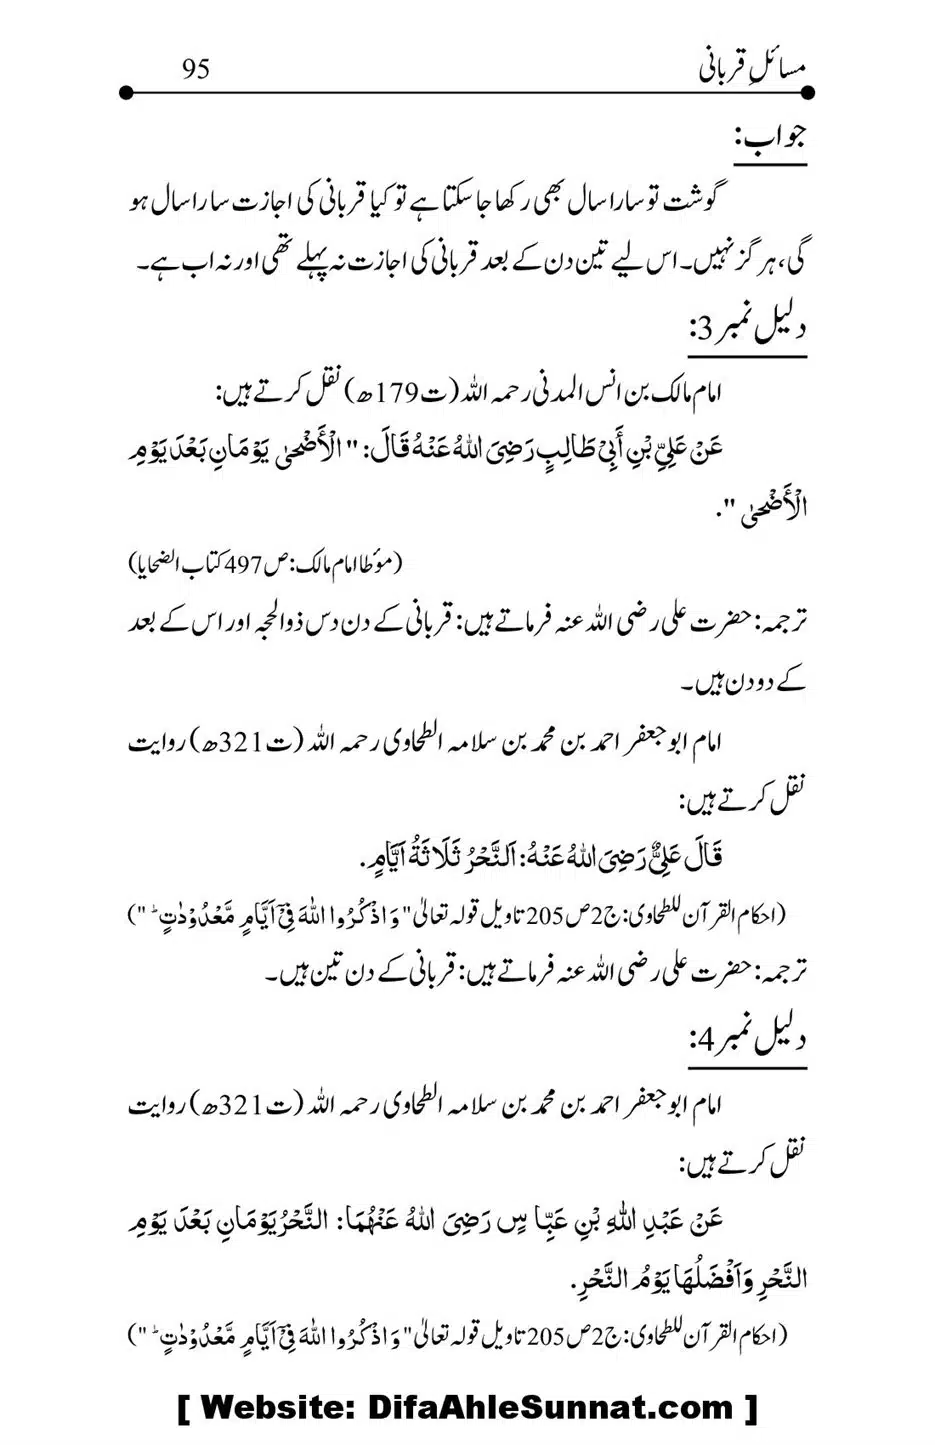 مسائلِ قربانی 95
جواب:
گوشت تو سارا سال بھی رکھا جا سکتا ہے تو کیا قربانی کی اجازت سارا سال ہو
گی، ہر گز نہیں۔ اس لیے تین دن کے بعد قربانی کی اجازت نہ پہلے تھی اور نہ اب ہے۔
دلیل نمبر 3:
امام مالک بن انس المدنی رحمہ اللہ (ت179ھ) نقل کرتے ہیں:
عَنْ عَلِيِّ بْنِ أَبِيْ طَالِبٍ رَضِيَ اللهُ عَنْهُ قَالَ: "الْأَضْحٰى يَوْمَانِ بَعْدَ يَوْمِ
الْأَضْحٰى".
(مؤطا امام مالک: ص497 کتاب الضحایا)
ترجمہ: حضرت علی رضی اللہ عنہ فرماتے ہیں: قربانی کے دن دس ذوالحجہ اور اس کے بعد
کے دو دن ہیں۔
امام ابو جعفر احمد بن محمد بن سلامہ الطحاوی رحمہ اللہ (ت321ھ) روایت
نقل کرتے ہیں:
قَالَ عَلِيٌّ رَضِيَ اللهُ عَنْهُ: اَلنَّحْرُ ثَلَاثَةُ اَيَّامٍ.
(احکام القرآن للطحاوی: ج2 ص205 تاویل قولہ تعالیٰ "وَاذْكُرُوا اللّٰهَ فِيْٓ اَيَّامٍ مَّعْدُوْدٰتٍ ؕ")
ترجمہ: حضرت علی رضی اللہ عنہ فرماتے ہیں: قربانی کے دن تین ہیں۔
دلیل نمبر 4:
امام ابو جعفر احمد بن محمد بن سلامہ الطحاوی رحمہ اللہ (ت321ھ) روایت
نقل کرتے ہیں:
عَنْ عَبْدِ اللّٰهِ بْنِ عَبَّاسٍ رَضِيَ اللهُ عَنْهُمَا: النَّحْرُ يَوْمَانِ بَعْدَ يَوْمِ
النَّحْرِ وَاَفْضَلُهَا يَوْمُ النَّحْرِ.
(احکام القرآن للطحاوی: ج2 ص205 تاویل قولہ تعالیٰ "وَاذْكُرُوا اللّٰهَ فِيْٓ اَيَّامٍ مَّعْدُوْدٰتٍ ؕ")
[ Website: DifaAhleSunnat.com ]